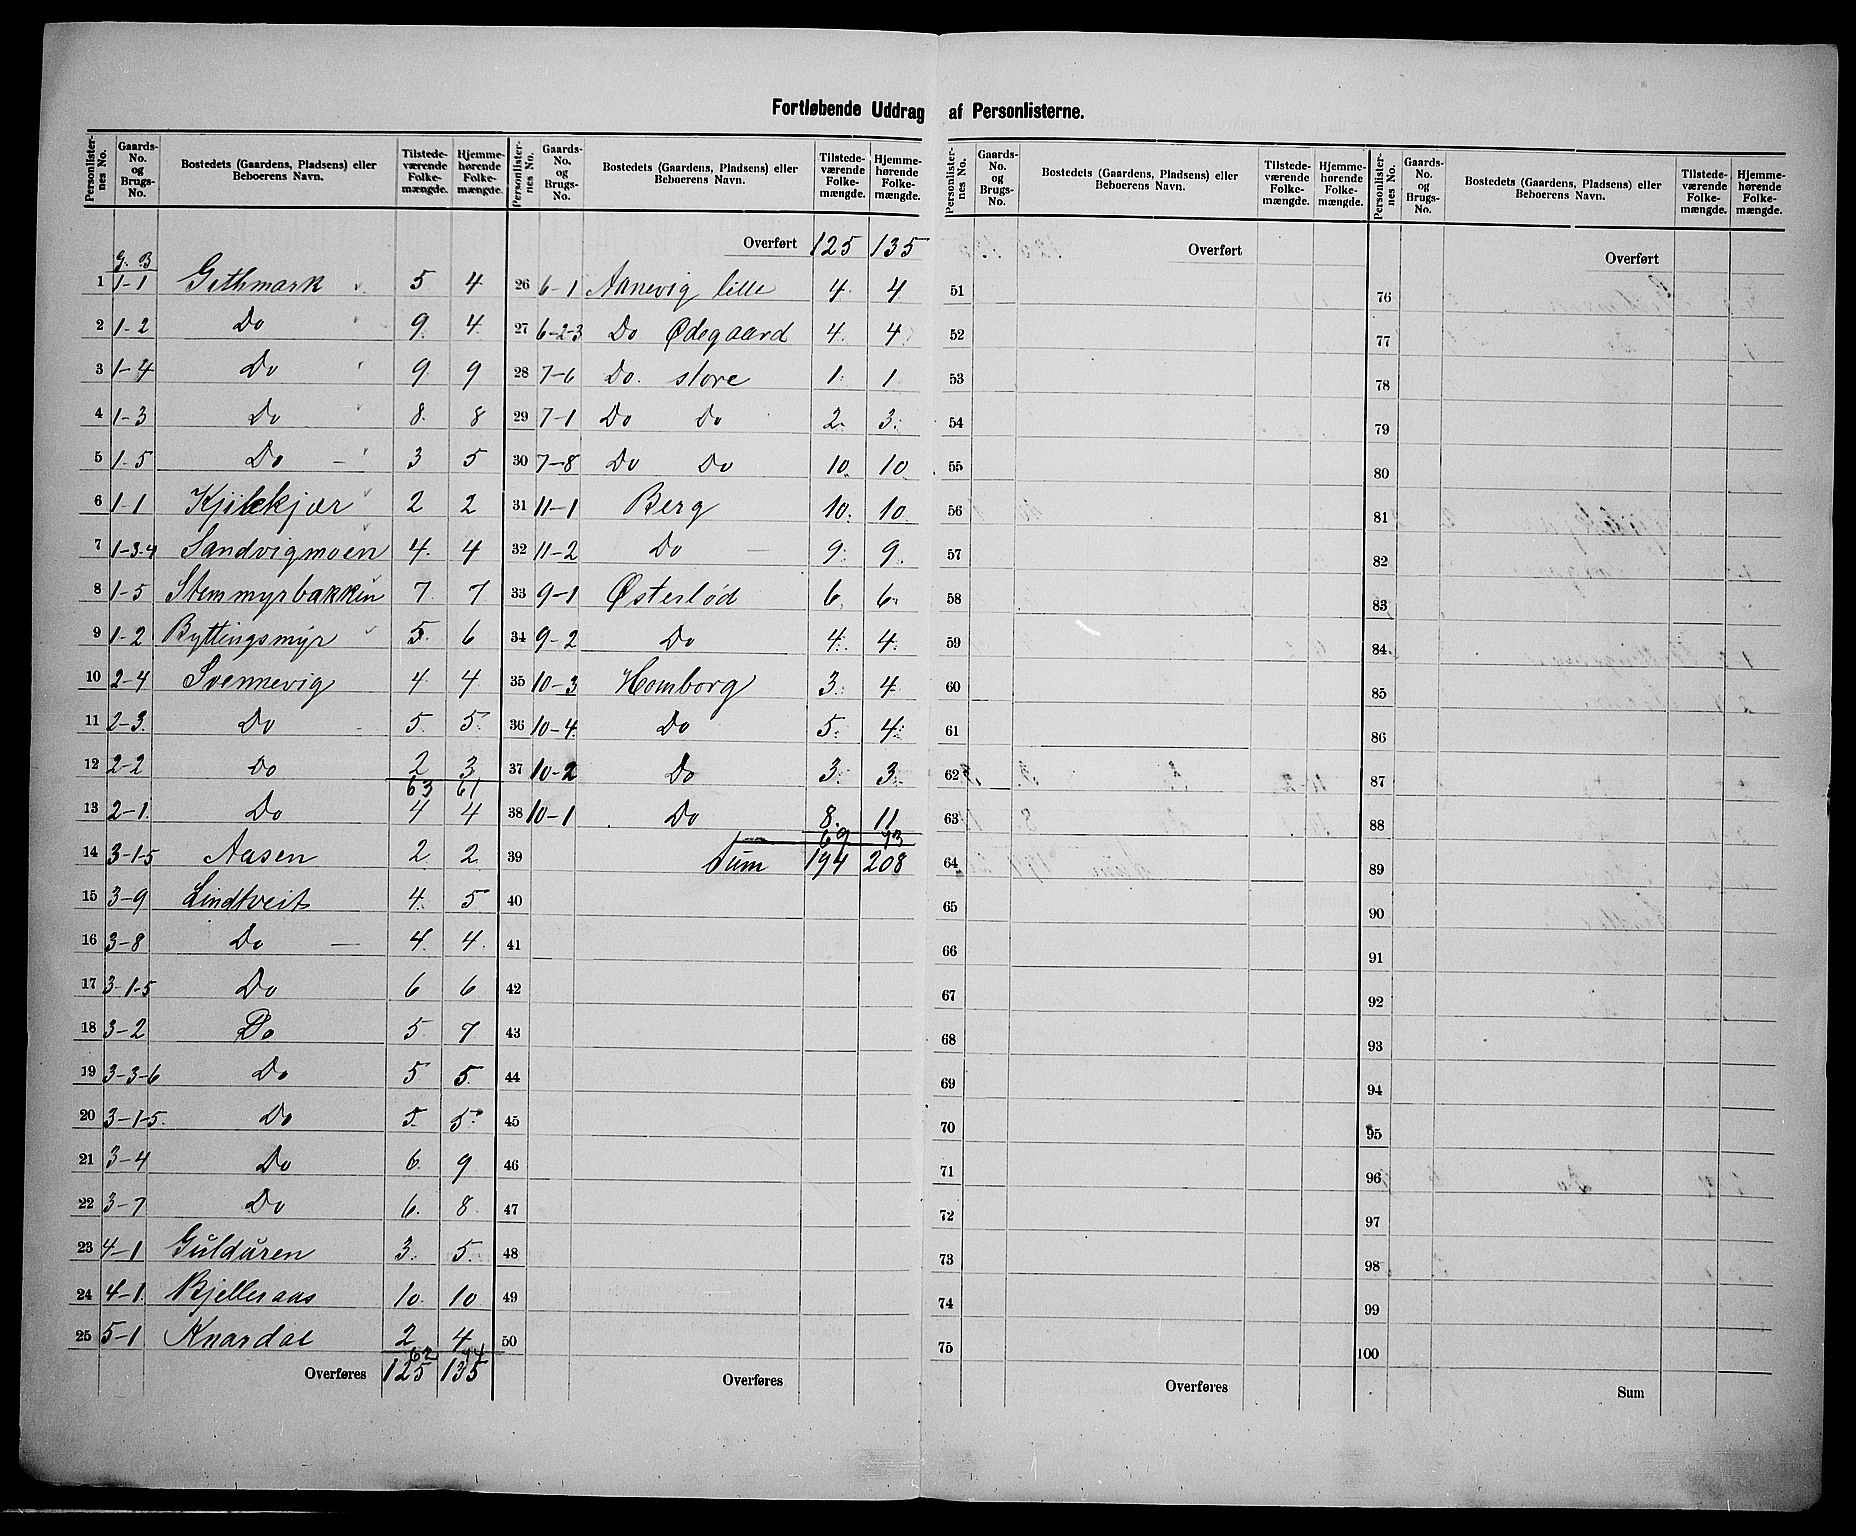 Fortløbende Uddrag af Personlisterne.
Personlister-nes No. Gaards-No. og Brugs-No. Bostedets (Gaardens, Pladsens) eller Beboerens Navn. Tilstede-værende Folke-mængde. Hjemme-hørende Folke-mængde.
G. B
1 1-1 Githmark 5 4
2 1-2 Do 9 4
3 1-4 Do 9 9
4 1-3 Do 8 8
5 1-5 Do 3 5
6 1-1 Kjilekjær 2 2
7 1-3-4 Sandvigmoen 4 4
8 1-5 Stemmyrbakken 7 7
9 1-2 Byttingsmyr 5 6
10 2-4 Svennevig 4 4
11 2-3 Do 5 5
12 2-2 Do 2 3
63 61
13 2-1 Do 4 4
14 3-1-5 Aasen 2 2
15 3-9 Lindtveit 4 5
16 3-8 Do 4 4
17 3-1-5 Do 6 6
18 3-2 Do 5 7
19 3-3-6 Do 5 5
20 3-1-5 Do 5 5
21 3-4 Do 6 9
22 3-7 Do 6 8
23 4-1 Gulduren 3 5
24 4-1 Bjelleraas 10 10
25 5-1 Knardal 2 4
62 74
Overføres 125 135
Personlister-nes No. Gaards-No. og Brugs-No. Bostedets (Gaardens, Pladsens) eller Beboerens Navn. Tilstede-værende Folke-mængde. Hjemme-hørende Folke-mængde.
Overført 125 135
26 6-1 Aanevig lille 4 4
27 6-2-3 Do Ødegaard 4 4
28 7-6 Do. store 1 1
29 7-1 Do Do 2 3
30 7-8 Do Do 10 10
31 11-1 Berg 10 10
32 11-2 Do 9 9
33 9-1 Østerlød 6 6
34 9-2 Do 4 4
35 10-3 Homborg 3 4
36 10-4 Do 5 4
37 10-2 Do 3 3
38 10-1 Do 8 11
69 73
39 Sum 194 208
40
41
42
43
44
45
46
47
48
49
50
Overføres
Personlister-nes No. Gaards-No. og Brugs-No. Bostedets (Gaardens, Pladsens) eller Beboerens Navn. Tilstede-værende Folke-mængde. Hjemme-hørende Folke-mængde.
Overført
51
52
53
54
55
56
57
58
59
60
61
62
63
64
65
66
67
68
69
70
71
72
73
74
75
Overføres
Personlister-nes No. Gaards-No. og Brugs-No. Bostedets (Gaardens, Pladsens) eller Beboerens Navn. Tilstede-værende Folke-mængde. Hjemme-hørende Folke-mængde.
Overført
76
77
78
79
80
81
82
83
84
85
86
87
88
89
90
91
92
93
94
95
96
97
98
99
100
Sum